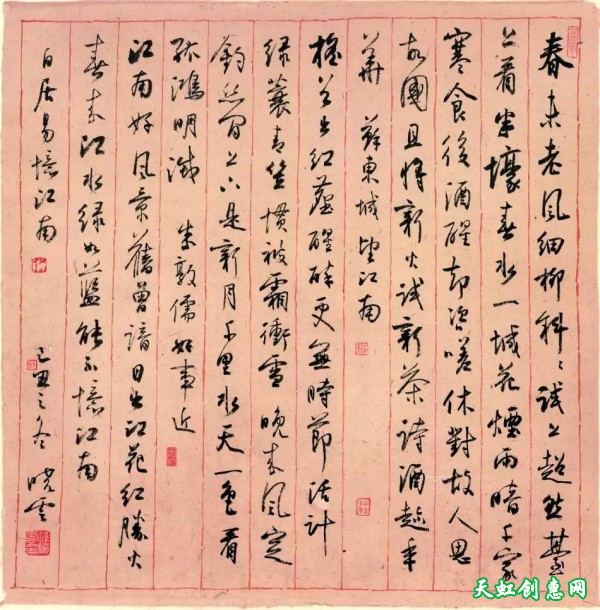 春未老風細柳斜〻試上超然臺
上看半壕春水一城花煙雨暗千家
寒食後酒醒却咨嗟休對故人思
故國且將新火試新茶詩酒趁年
華 蘇東坡望江南
搖首出紅塵醒醉更無時節活計
綠蓑青笠慣被霜衝雪晚來風定
釣絲閒上下是新月千里水天一色看
孤鴻明滅 朱敦儒好事近
江南好風景舊曾諳日出江花紅勝火
春來江水綠如藍能不憶江南
白居易憶江南
己丑之冬 晓雲
天虹创惠网